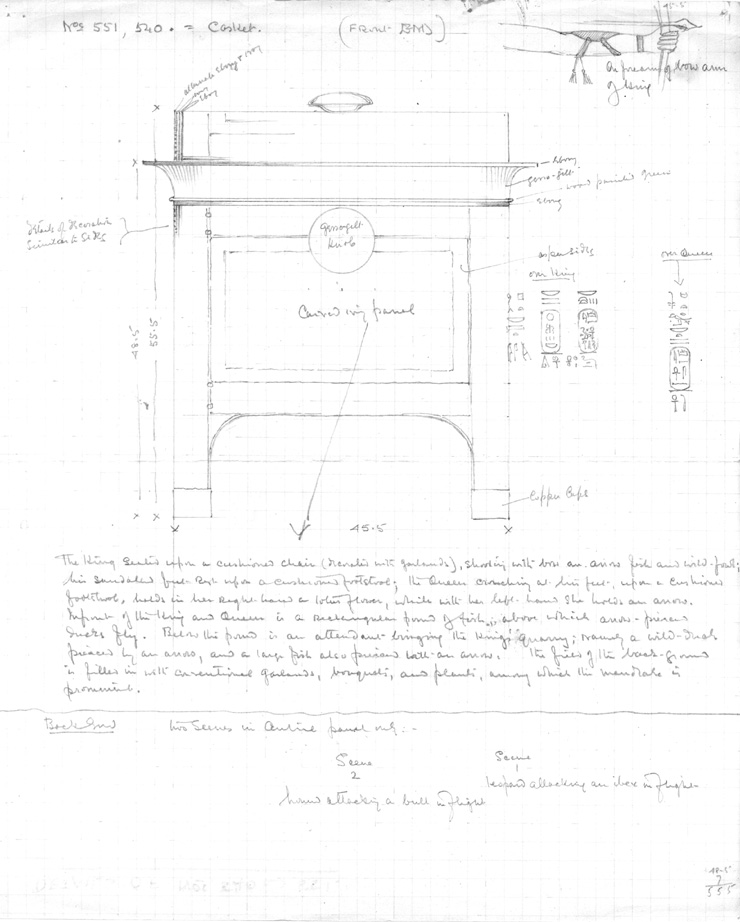 Nos 551, 540. = Casket. (FRONT END)
45.5
On forearm of bow arm
of King
alternate ebony & ivory
ivory
ebony
ebony
gesso-gilt
wood painted green
ebony
Details of decoration
similar to sides
gesso-gilt
Knob
as per sides
over King
over Queen
Carved ivory panel
48.5
55.5
7
Copper Caps
45.5
The King seated upon a cushioned chair (decorated with garlands), shooting with bow an arrow fish and wild-fowl;
his sandaled feet rest upon a cushioned footstool; the Queen crouching at his feet, upon a cushioned
footstool, holds in her right hand a lotus flower, while with her left hand she holds an arrow.
In front of the King and Queen is a rectangular pond of fish, above which arrow-pierced
ducks fly. Below the pond is an attendant bringing the King's quarry; namely a wild-duck
pierced by an arrow, and a large fish also pierced with an arrow. The field of the back-ground
is filled in with conventional garlands, bouquets, and plants, among which the mandrake is
prominent.
Back End two scenes in central panel only: -
Scene
2
hound attacking a bull in flight
Scene
1
leopard attacking an ibex in flight
48.5
7
55.5